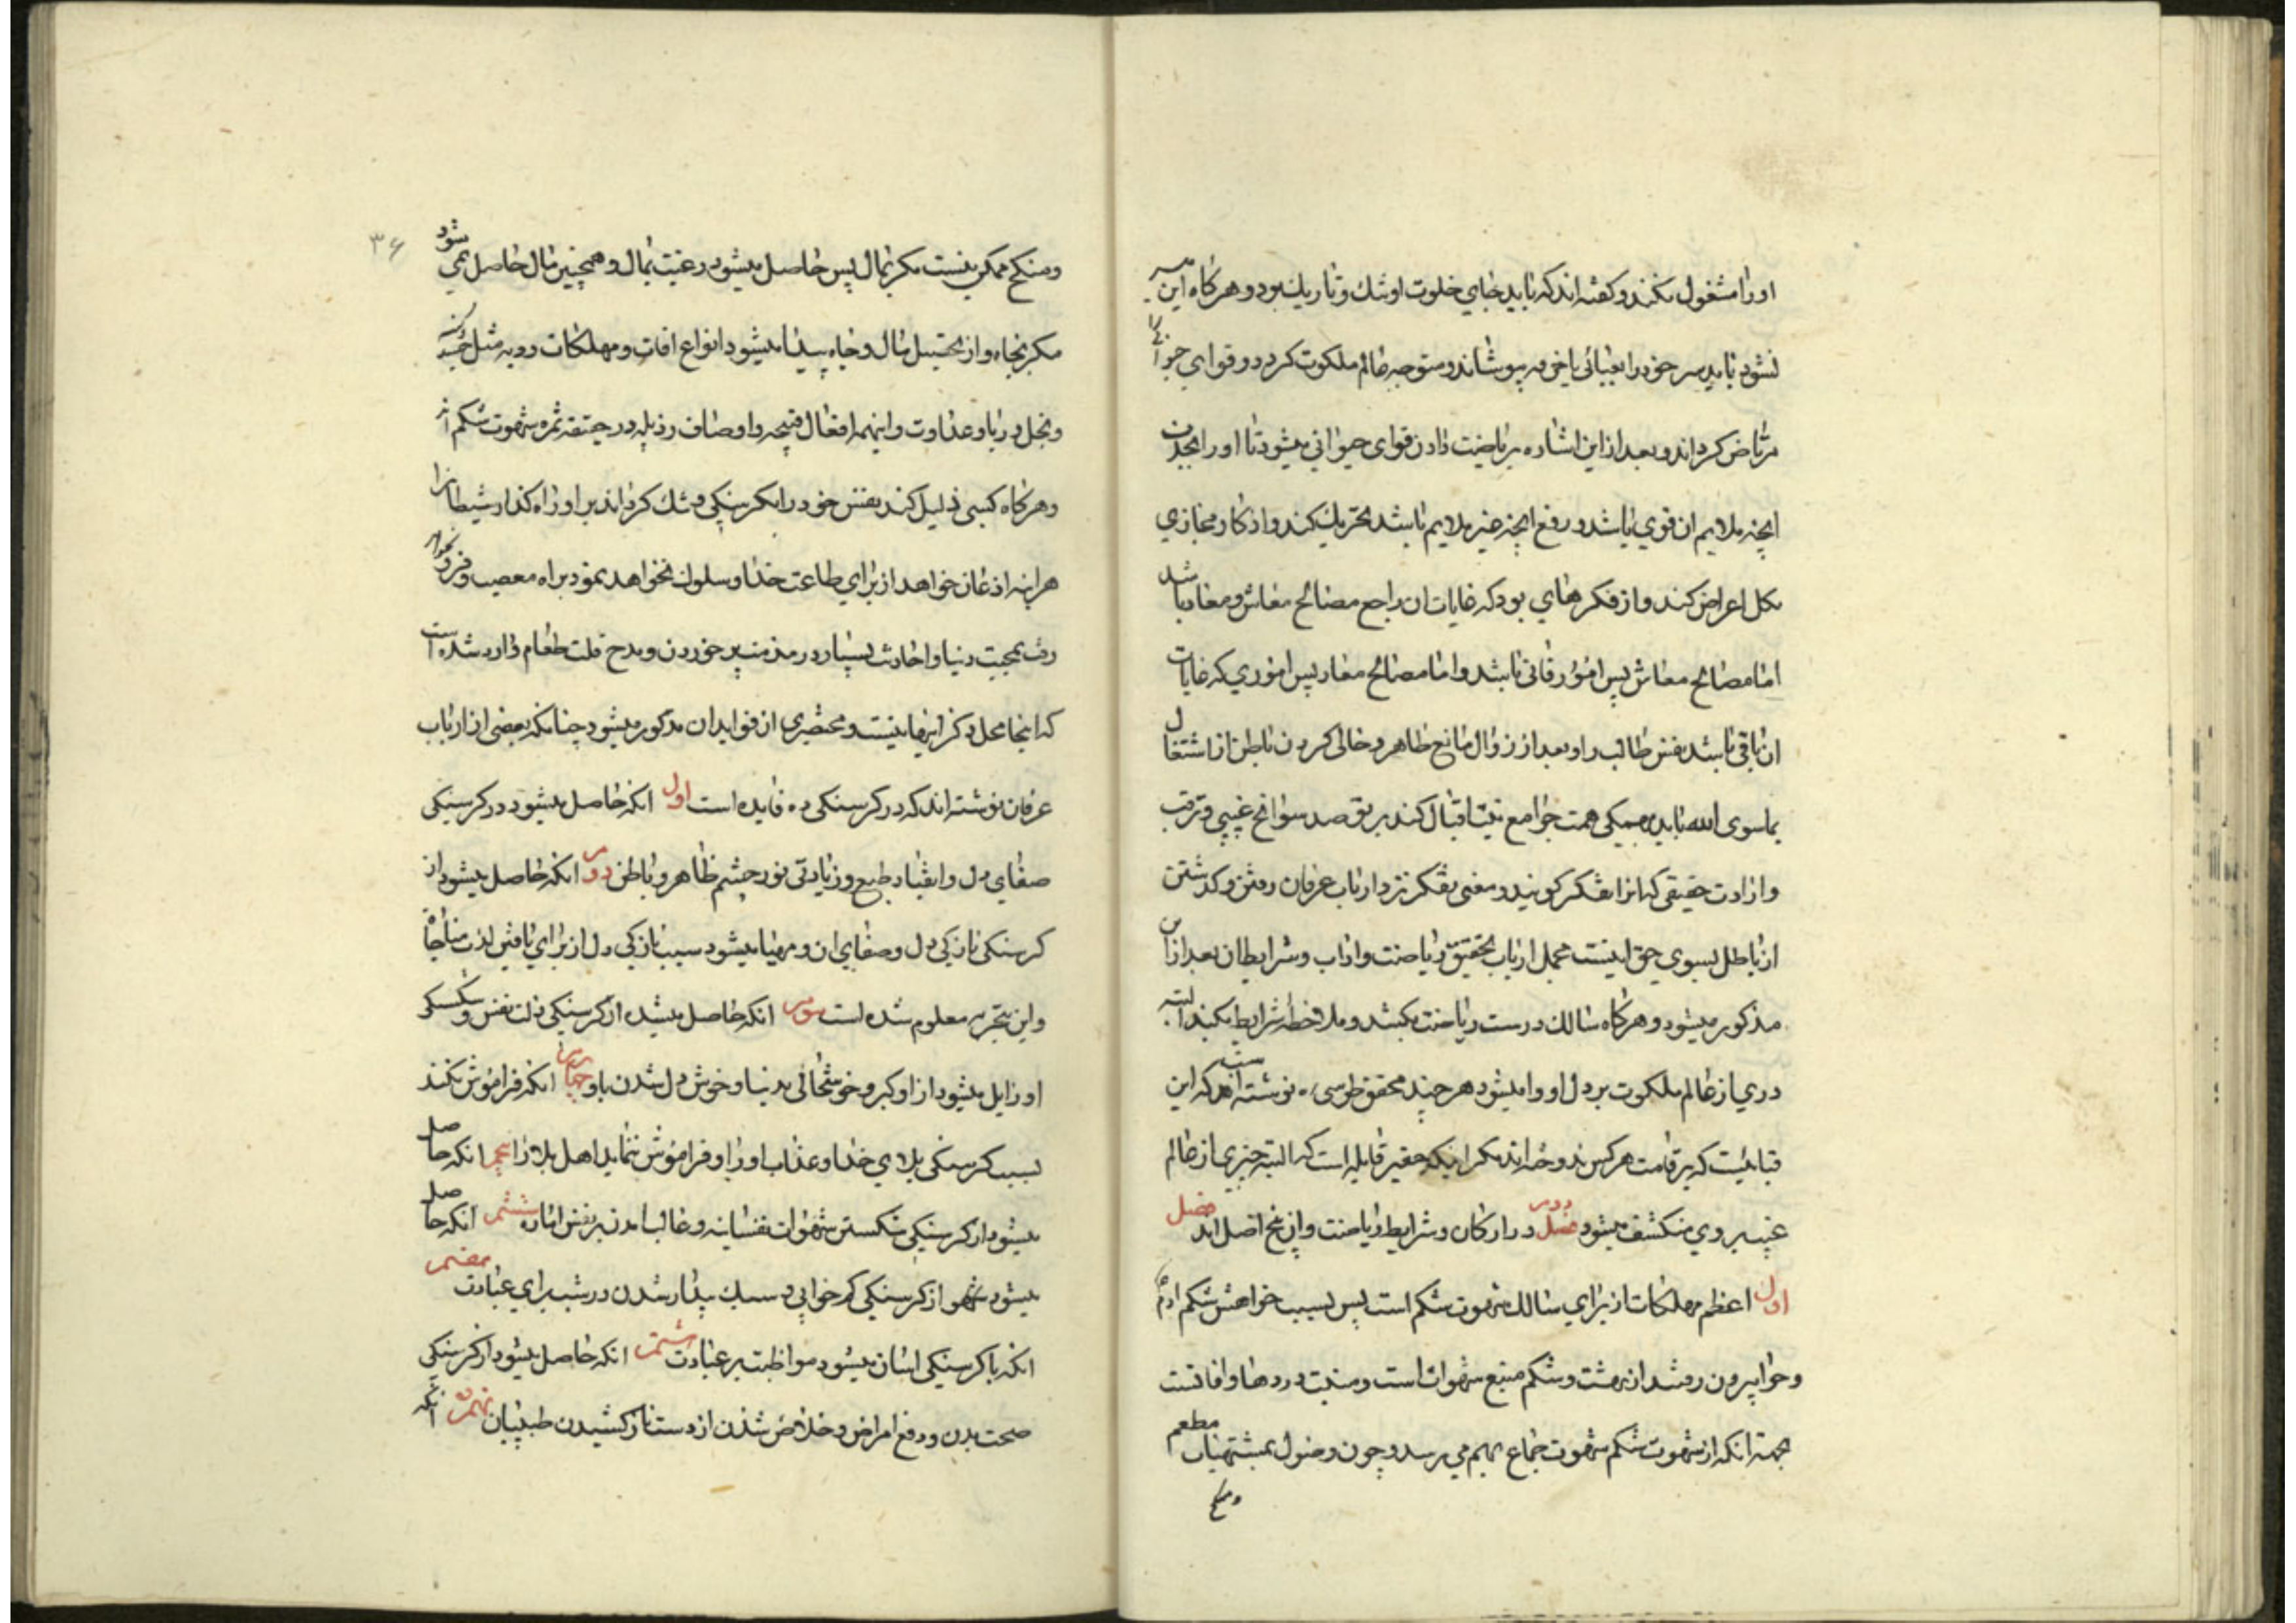 اورا مشغول نکند و کفته اند که باید جای خلوت او تنك و تاریك بود و هر کاه این میسر
نشود باید سر خود را بعبائی یا خرقه بپوشاند و متوجه عالم ملکوت کردد و قوای حیوانی را
مرتاض کرداند و بعد از این اشاره بریاضت دادن قوای حیوانی میشود تا اورا بجذب
انچه ملایم ان قوی باشد و رفع انچه غیر ملایم باشد تحریك کند و از کار مجازی
بکل اعراض کند و از فکرهای بود که غایات ان راجع مصالح معاش و معاد باشد
اما مصالح معاش پس امور فانی باشد و اما مصالح معاد پس اموری که غایات
ان باقی باشد نفس طالب را و بعد از زوال مانع ظاهر و خالی کردن باطن از اشتغال
بماسوی الله باید بهمکی همت جوامع نیت اقبال کند بر ترصد سوانح غیبی و ترقب
واردات حقیقی که انرا تفکر کویند و معنی تفکر نزد ارباب عرفان رفتن و کذشتن
از باطل بسوی حق اینست مجمل ارباب تحقیق و ریاضت و اداب و شرایط ان بعد از این
مذکور میشود و هر کاه سالك درست ریاضت بکشد و ملاحظه شرایط بکند البته
دری از عالم ملکوت بر دل او وا میشود هر چند محقق طوسی ره نوشته است که این
قبائیست که بر قامت هر کس ندوخته اند مکر اینکه حقیر قایله است که البته چیزی از عالم
غیب بر وی منکشف میشود فصل دویم در ارکان و شرایط ریاضت و ان پنج اصل اند فصل
اول اعظم مهلکات از برای سالك شهوت شکم است پس بسبب خواهش شکم ادم
و حوا بیرون رفتند از بهشت و شکم منبع شهوات است و منبت دردها و افاتست
بجهة انکه از شهوت شکم شهوت جماع بهم می رسد و چون وصول بمشتهیات مطعم
و منکح
۳۶
و منکح ممکن نیست مکر بمال پس حاصل میشود رغبت بمال و همچنین مال حاصل نمی شود
مکر بجاه و از تحصیل مال و جاه پیدا میشود انواع افات و مهلکات ردیه مثل حسد و کینه
و بخل و ریا و عداوت و اینهمه افعال قبیحه و اوصاف رذیله در حقیقه ثمره شهوت شکم اند
و هر کاه کسی ذلیل کند نفس خود را بکرسنکی و تنك کرداند بر او راه کذار شیطان را
هراینه اذعان خواهد از برای طاعت خدا و سلوك نخواهد نمود براه معصیت و فرو نخواهد
رفت بمحبت دنیا و احادیث بسیار در مذمت پر خوردن و مدح قلت طعام وارد شده است
که اینجا محل ذکر اینها نیست و مختصری از فواید ان مذکور میشود چنانکه بعضی از ارباب
عرفان نوشته اند که در کرسنکی ده فایده است اول انکه حاصل میشود در کرسنکی
صفای دل و انقیاد طبع و زیادتی نور چشم ظاهر و باطن دویم انکه حاصل میشود از
کرسنکی نازکی دل و صفای ان و مهیا میشود سبب نازکی دل از برای یافتن لذت مناجاة
و این بتجربه معلوم شده است سویم انکه حاصل میشود از کرسنکی ذلت نفس و شکستکی
او زایل میشود از او کبر و خوشحالی بدنیا و خوش دل شدن باو چهارم انکه فراموش نکند
بسبب کرسنکی بلای خدا و عذاب اورا و فراموش ننماید اهل بلا را پنجم انکه حاصل
میشود از کرسنکی شکستن شهوات نفسانیه و غالب امدن بر نفس اماره ششم انکه حاصل
میشود از کرسنکی کم خوابی و سبك بیدار شدن در شب برای عبادت هفتم
انکه با کرسنکی اسان میشود مواظبت بر عبادت هشتم انکه حاصل میشود از کرسنکی
صحت بدن و دفع امراض و خلاص شدن از دست ناز کشیدن طبیبان نهم انکه